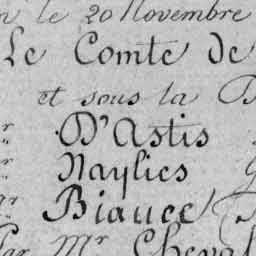 n le 20 Novembre
Le Comte de
et sous la D
r D'Astis
r Naylies
r Biauce
Par Mr Cheval